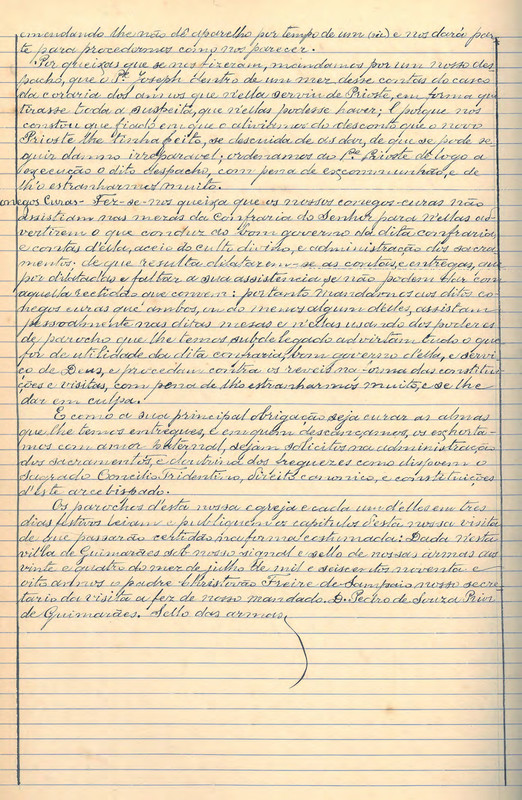 emendando lhe não dê aparelho por tempo de um (sic) e nos dará par-
te para procedermos como nos parecer.
Por queixas que se nos fizeram, mandamos por um nosso des-
pacho, que o Pe. Joseph dentro de um mez, desse contas do casco
da coraria dos annos que nella serviu de Prioste, em forma que
tirasse toda a suspeita, que nellas podesse haver; E porque nos
constou que fiado em que o aliviamos do desconto que o novo
Prioste lhe tinha feito, se descuida de as dar, de que se pode se-
guir damno irreparavel; ordenamos ao Pe. Prioste dê logo a
execução o dito despacho, com pena de excommunhão, e de
lh'o estranharmos muito.
Conegos Curas - Fez-se-nos queixa que os nossos conegos-curas não
assistiam nas mezas da Confraria do Senhor para nellas ad-
vertirem o que conduz ao bom governo da dita confraria,
e contas d'ella, aceio do culto divino, e administração dos sacra-
mentos: de que resulta dilatarem-se as contas, e entregas, que
por dilatadas e faltar a sua assistencia se não podem dar com
aquella rectidão que convem: portanto mandamos aos ditos co-
negos curas que ambos, ou ao menos algum d'elles, assistam
pessoalmente nas ditas mesas e n'ellas usando dos poderes
de parocho que lhe temos subdelegado advirtam tudo o que
for de utilidade da dita confraria, bom governo d'ella, e servi-
ço de Deus, e procedam contra os reveis na forma das constitui-
ções e visitas, com pena de lh'o estranharmos muito, e se lhe
dar em culpa.
E como a sua principal obrigação seja curar as almas
que lhe temos entregues, e em quem descançamos, os exhorta-
mos com amor Paternal, sejam solicitos na administração
dos sacramentos, e doutrina dos freguezes como dispoem o
Sagrado Concilio Tridentino, direito canonico, e constituições
d'este arcebispado.
Os parochos d'esta nossa egreja e cada um d'elles em tres
dias festivos leiam e publiquem os capitulos d'esta nossa visita
de que passarão certidão na forma costumada: Dada n'esta
villa de Guimarães sob nosso signal e sello de nossas armas aos
vinte e quatro do mez de julho de mil e seiscentos noventa e
oito annos o padre Christovão Freire de Sampaio nosso secre-
tario da visita a fez de nosso mandado. D. Pedro de Souza Prior
de Guimarães. Sello das armas